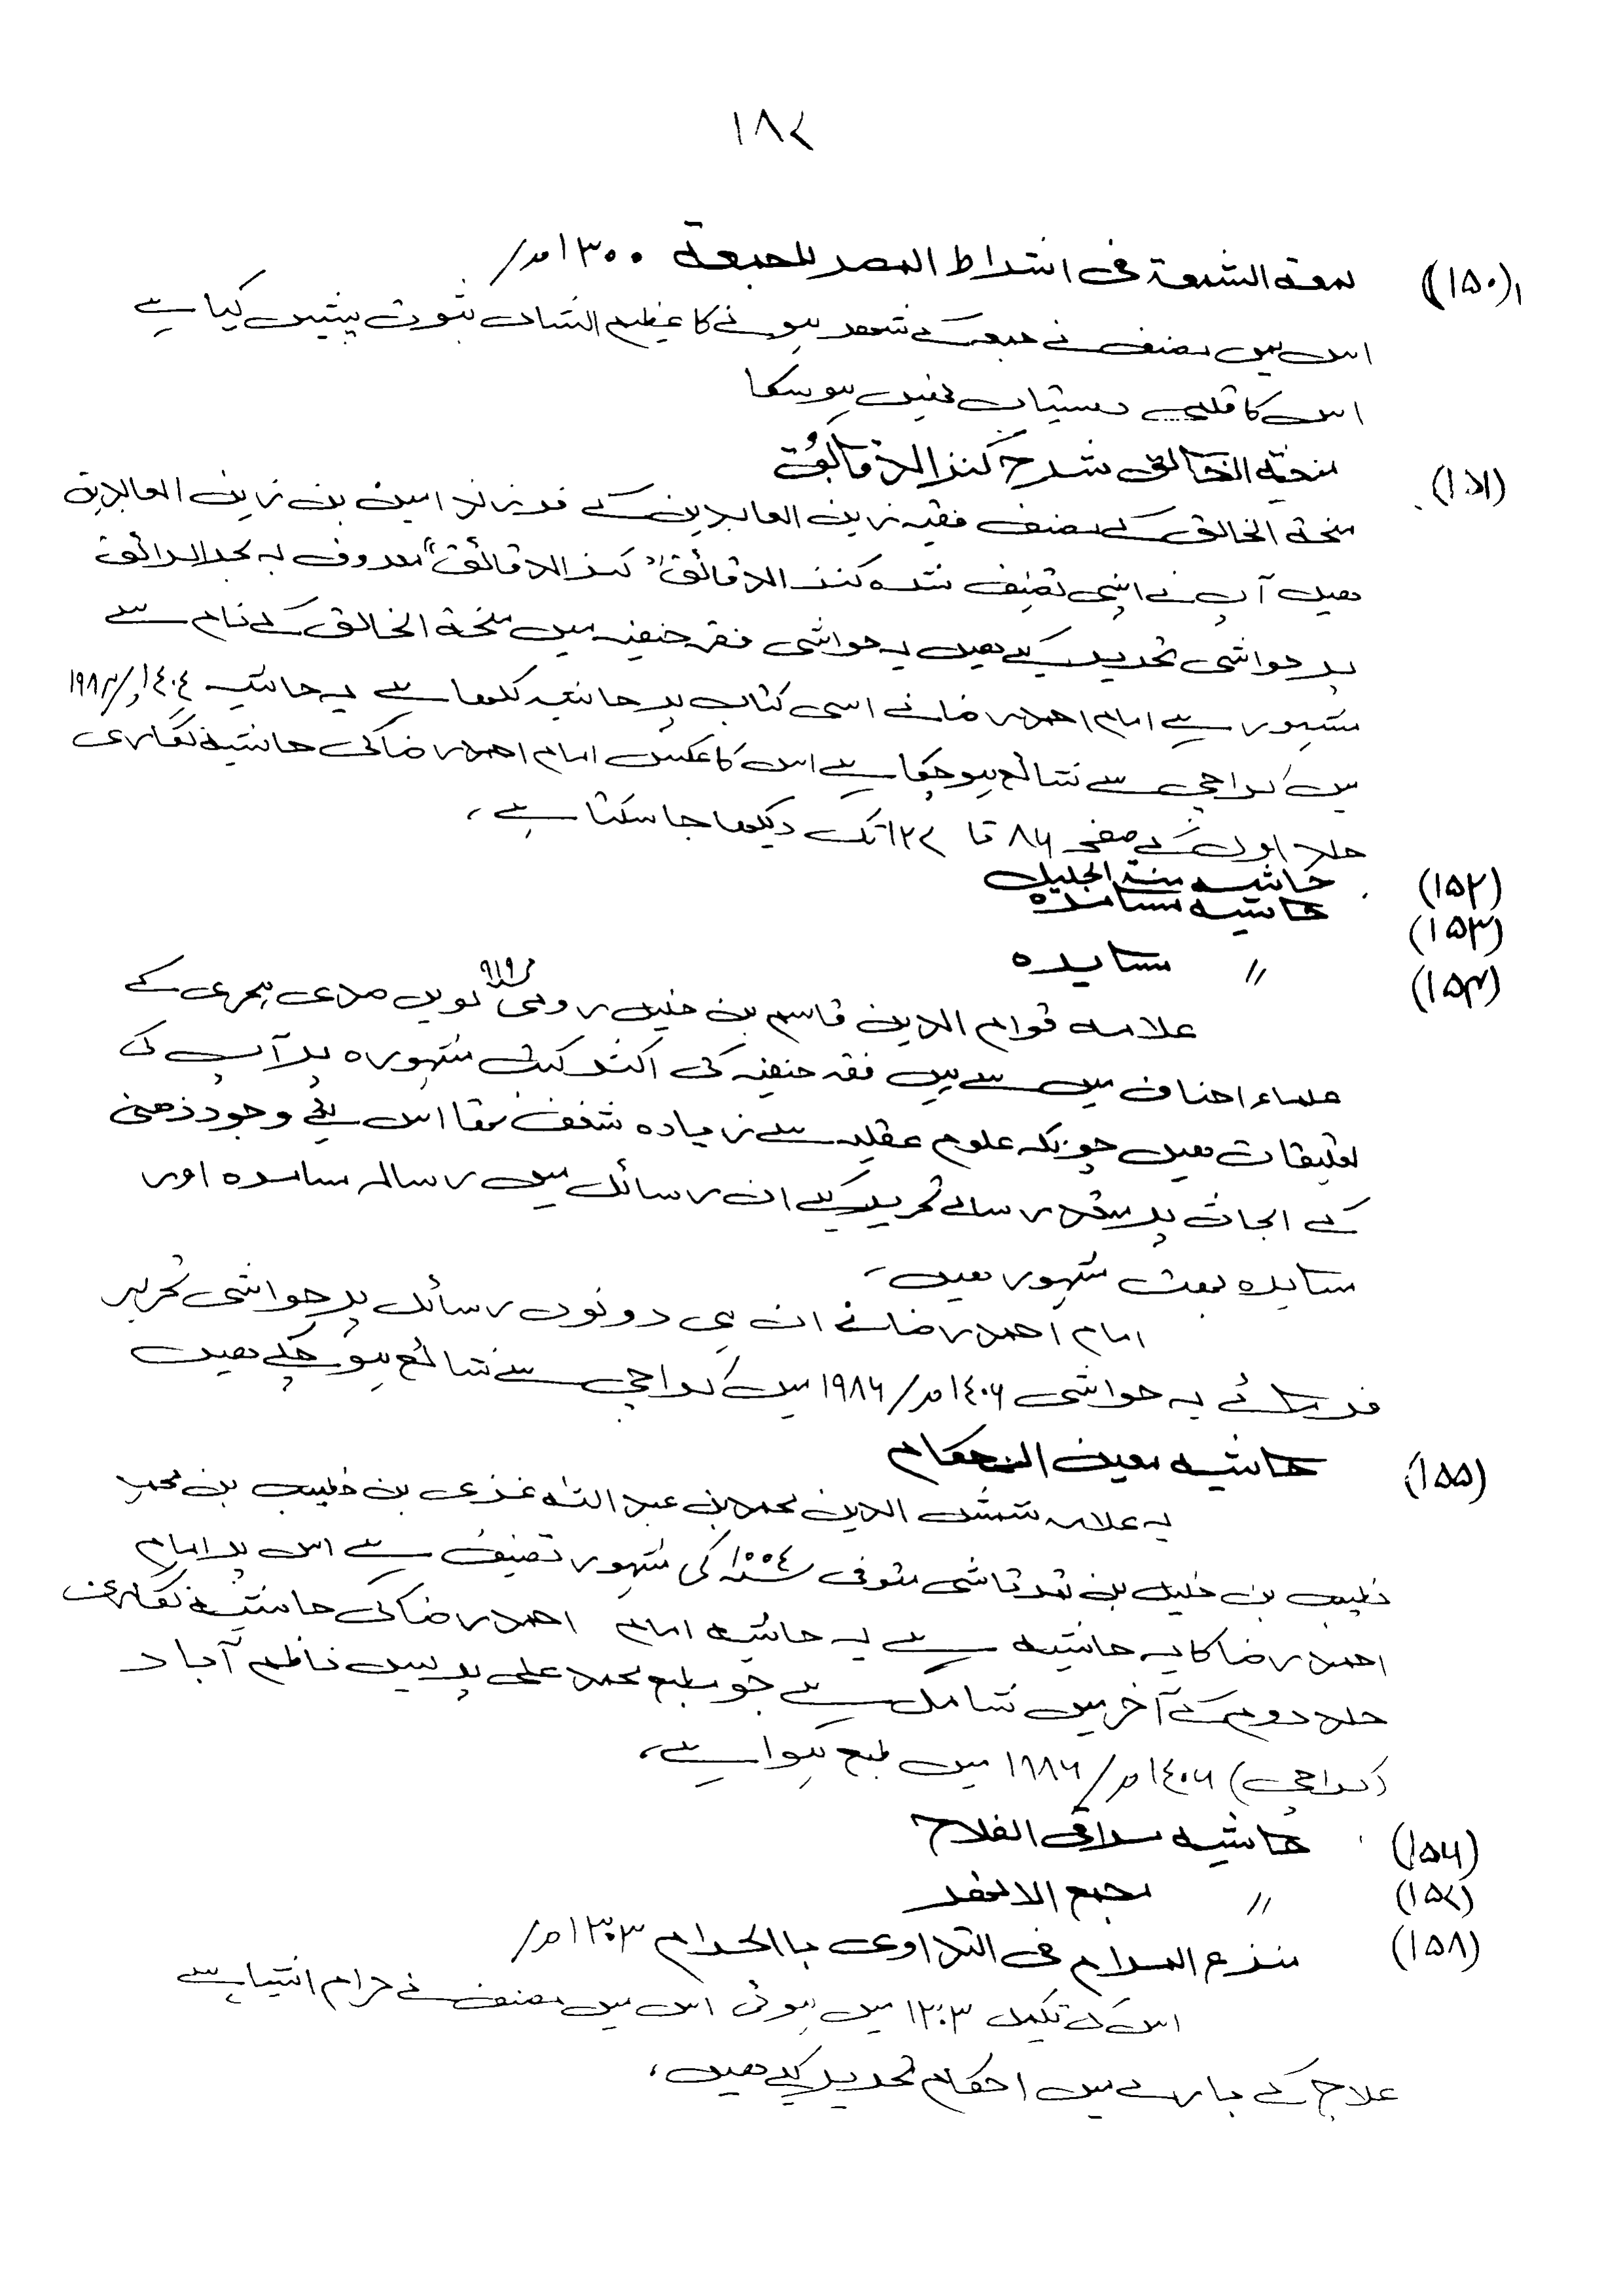 ۱۸۷
(۱۵۰) لمعۃ الشمعۃ فی اشتراط المصر للجمعۃ ۱۳۰۰ھ/
اس میں مصنف نے جمعہ کے شھر ہونے کا عظیم الشان ثبوت پیش کیا ہے
اس کا قلمی دستیاب نھیں ہوسکا
(۱۵۱) منحۃ الخالق شرح کنز الدقائق
منحۃ الخالق کے مصنف فقیہ زین العابدین کے فرزند امین بن زین العابدین
ھیں آپ نے اپنی تصنیف شدہ کنز الدقائق "کنز الدقائق" معروف بہ بحر الرائق
پر حواشی تحریر کیے ھیں یہ حواشی فقہ حنفیہ میں منحۃ الخالق کے نام سے
مشہور ہے امام احمد رضا نے اسی کتاب پر حاشیہ لکھا ہے یہ حاشیہ ۱٤۰٤ھ/۱۹۸۳
میں کراچی سے شائع ہوچکا ہے اس کا عکس امام احمد رضا کی حاشیہ نگاری
جلد اول کے صفحہ ۸۶ تا ۱۲۷ تک دیکھا جا سکتا ہے،
(۱۵۲) حاشیہ منۃ الجلیل
(۱۵۳) حاشیہ مسامرہ
(۱۵۴) " مسایرہ
علامہ قوام الدین قاسم بن خلیل رومی م۹۱۹ نویں صدی ہجری کے
علماء احناف میں سے ہیں فقہ حنفیہ کی اکثر کتب مشہورہ پر آپ کی
تعلیقات ھیں چونکہ علوم عقلیہ سے زیادہ شغف تھا اس لئے وجود ذھنی
کے ابحاث پر متعدد رسالے تحریر کیے ان رسائل میں رسالہ مسامرہ اور
مسایرہ بہت مشہور ھیں۔
امام احمد رضا نے ان ہی دونوں رسائل پر حواشی تحریر
فرمائے یہ حواشی ۱٤۰۶ھ/۱۹۸۶ میں کراچی سے شائع ہوچکے ھیں
(۱۵۵) حاشیہ معین الحکام
یہ علامہ شمس الدین محمد بن عبد اللہ غزی بن خطیب بن محمد
خطیب بن خلیل بن تمرتاشی متوفی ۱۰۰٤ کی مشہور تصنیف ہے اس پر امام
احمد رضا کا یہ حاشیہ ہے یہ حاشیہ امام احمد رضا کی حاشیہ نگاری
جلد دوم کے آخر میں شامل ہے جو مطبع محمد علی پریس ناظم آباد
(کراچی) ۱٤۰۶ھ/۱۹۸۶ میں طبع ہوا ہے،
(۱۵۶) حاشیہ مراقی الفلاح
(۱۵۷) " مجمع الانھر
(۱۵۸) منزع المرام فی التداوی باالحرام ۱۳۰۳ھ/
اس کی تکمیل ۱۳۰۳ میں ہوئی اس میں مصنف نے حرام اشیا سے
علاج کے بارے میں احکام تحریر کیے ھیں،